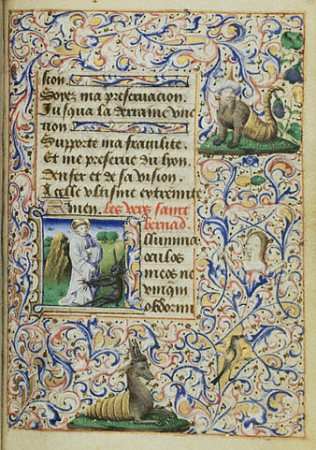 sion.
Soyez ma preseruacion.
Jusqua la derraine vnc
tion
Supporte ma fragilite.
Et me preserue du lyon.
denfer et de sa vision.
A celle vltisme extremite
Amen. les vers saint
bernad.
Illumina
oculos
meos ne
vnq̄m
obdormi